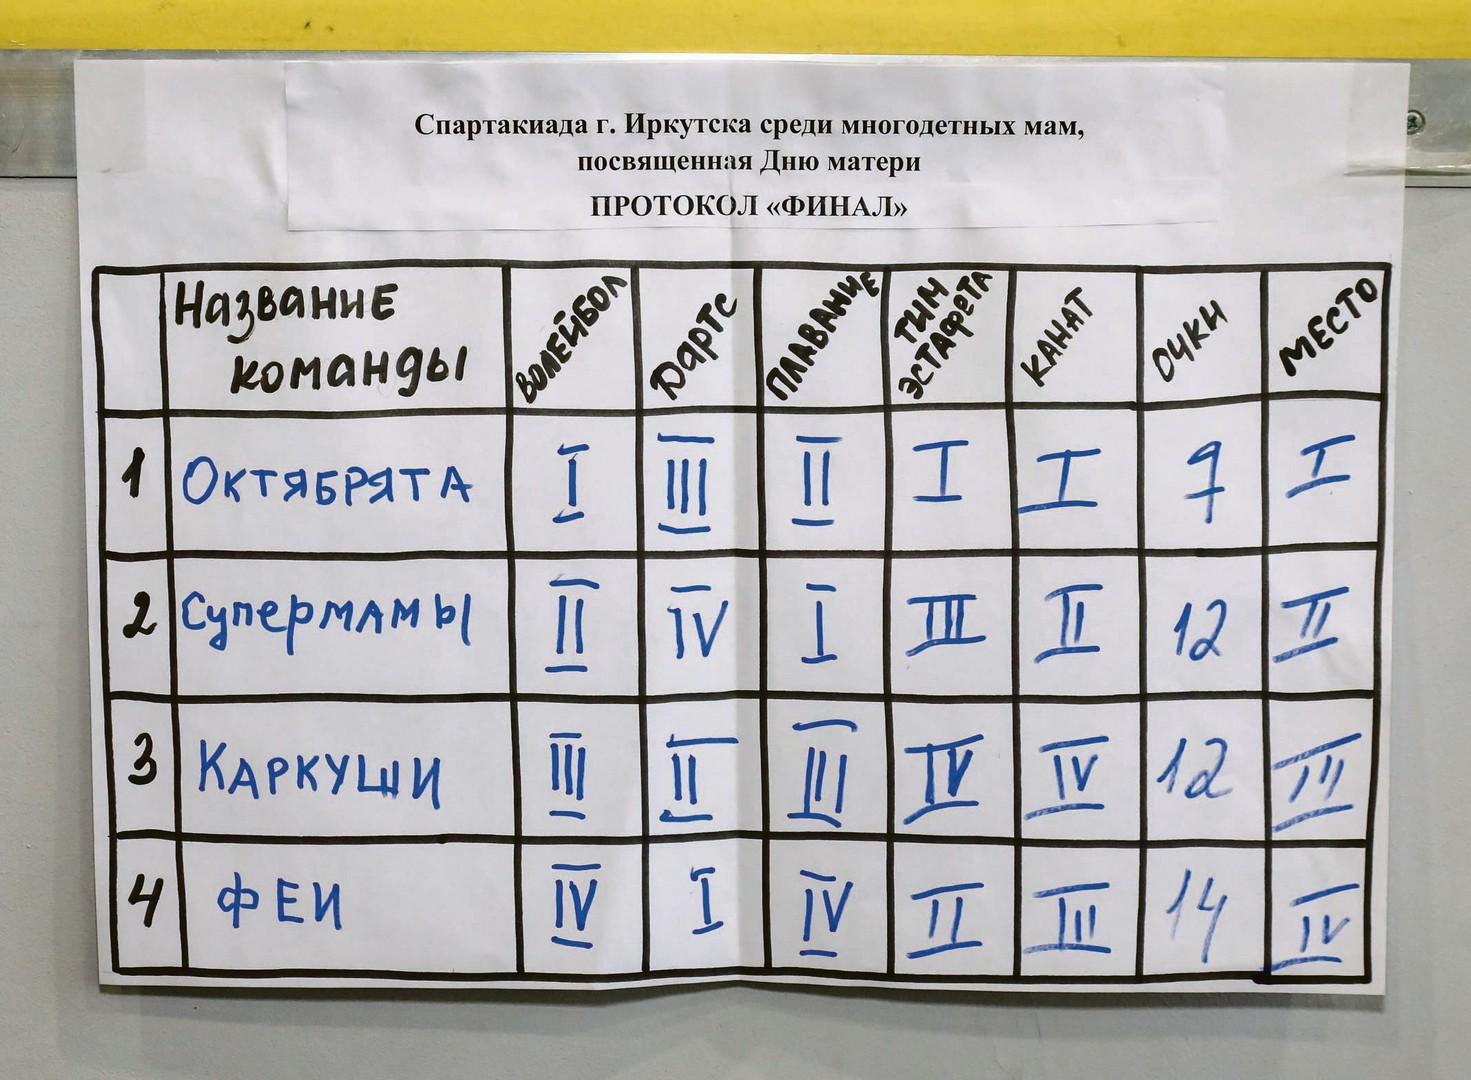 Спартакиада г. Иркутска среди многодетных мам,
посвященная Дню матери
ПРОТОКОЛ «ФИНАЛ»
Название команды ВОЛЕЙБОЛ Дартс ПЛАВАНИЕ ТИМ ЭСТАФЕТА КАНАТ ОЧКИ МЕСТО
1 ОКТЯБРЯТА I III II I I 7 I
2 Супермамы II IV I III II 12 II
3 КАРКУШИ III II III IV IV 12 III
4 ФЕИ IV I IV II III 14 IV